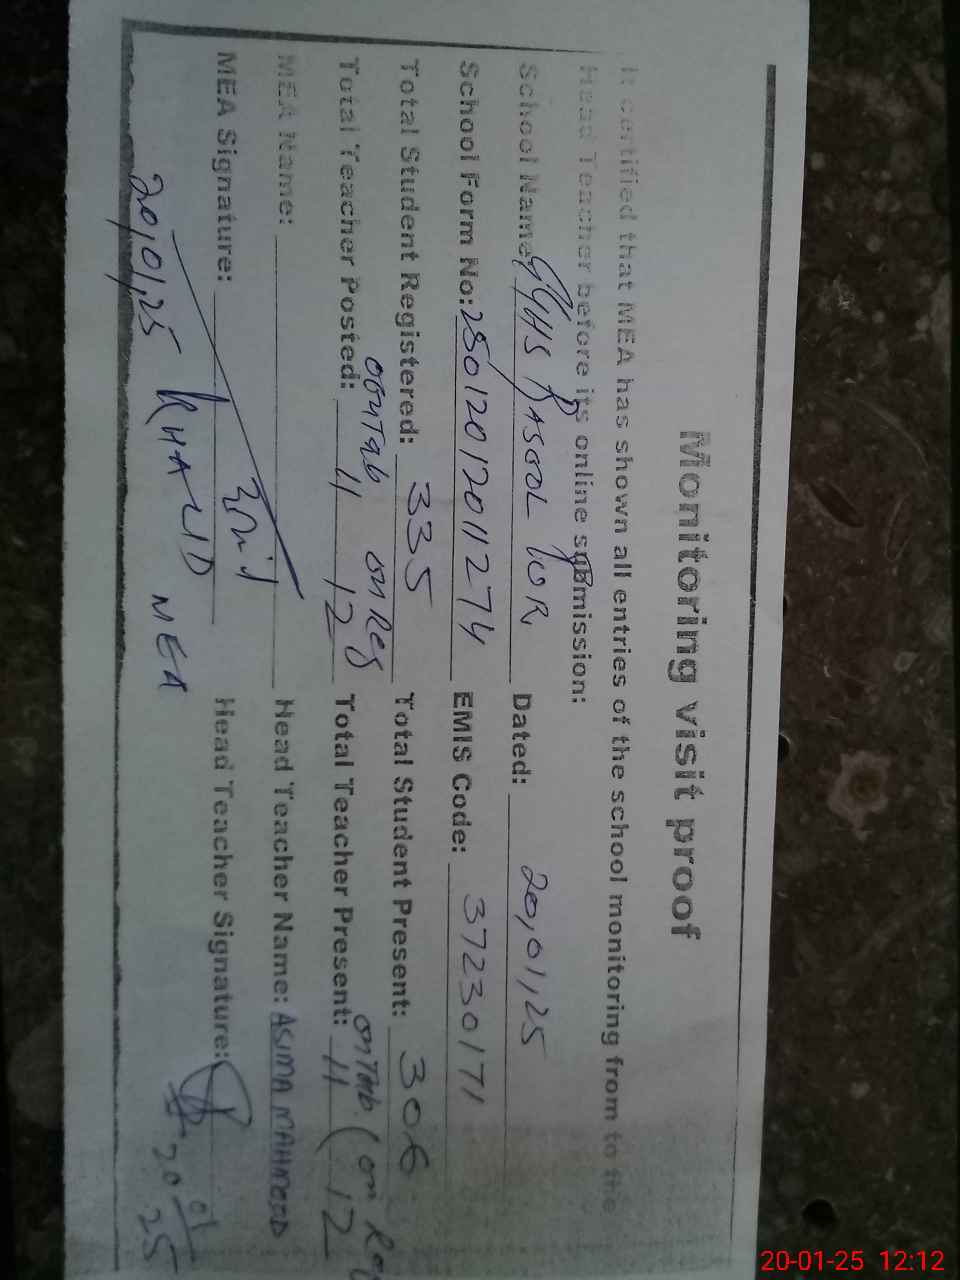 Monitoring visit proof
It certified that MEA has shown all entries of the school monitoring from to the
Head Teacher before its online submission:
School Name: GGHS RASOOL PUR Dated: 20,01,25
School Form No: 25012012011274 EMIS Code: 37230171
Total Student Registered: 335 Total Student Present: 306
on Tab on Reg on Tab (on Reg
Total Teacher Posted: 11 12 Total Teacher Present: 11 (12
MEA Name: Head Teacher Name: ASIMA MAHMOOD
MEA Signature: Head Teacher Signature:
20,01,25 KHALID MEA 20 01 25
20-01-25 12:12